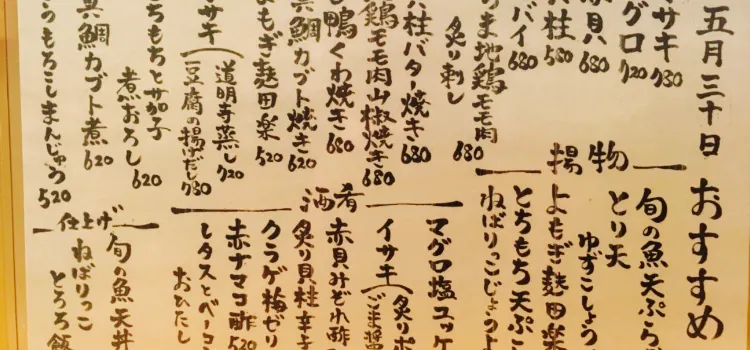 五月三十日 おすすめ
サキ 730
グロ 720
赤貝 680
貝柱 580
バイ 680
ま地鶏モモ肉
炙り刺し 680
貝柱バター焼き 680
鶏モモ肉山椒焼き 680
鴨くわ焼き 680
真鯛カブト焼き 620
よもぎ麩田楽 520
サキ
道明寺蒸し 720
豆腐の揚げだし 730
とちもちと茄子
煮おろし 620
真鯛カブト煮 620
うもろこしまんじゅう 520
揚物
旬の魚天ぷら
とり天
ゆずこしょう
よもぎ麩田楽
とちもち天ぷ
ねばりっこじょうよ
酒肴
マグロ塩ユッケ
イサキ
炙りポ
ごま醤
赤貝みぞれ酢
炙り貝柱辛子
クラゲ梅ゼリ
赤ナマコ酢 520
レタスとベーコン
おひたし
仕上げ
旬の魚天丼
ねばりっこ
とろろ飯